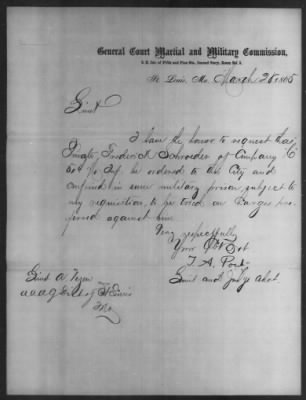 General Court Martial and Military Commission,
S. E. Cor. of Fifth and Pine Sts., Second Story, Room No. 3.
St. Louis, Mo. March 28 1865
Lieut
I have the honor to request that
Private Frederick Schroeder of Company "C"
Mo Inf. be ordered to this City and
confined in some military prison subject to
my requisition, to be tried on Charges pre-
ferred against him
Very respectfully
Your Obt Svt
T. A. Post
Lieut and Judge Advt.
Lieut A
a a a G Dist of St Louis
Mo